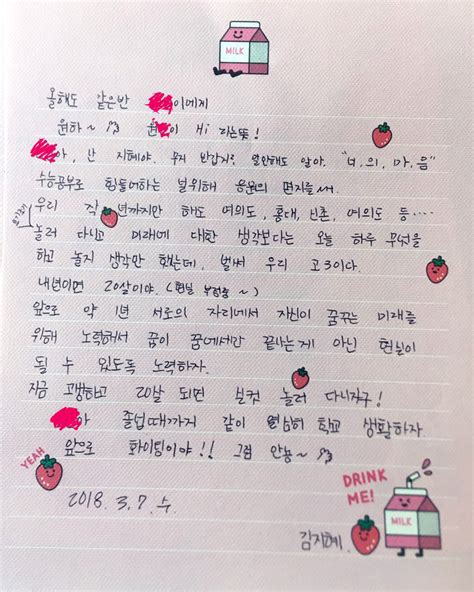 MILK
올해도 같은반 이에게
원하~ 이 Hi 라는뜻!
아, 난 지혜야. 무지 반갑지? 말안해도 알아. "너.의.마.음"
수능공부로 힘들어하는 널위해 응원의 편지를 써.
우리 작년까지만 해도 여의도, 홍대, 신촌, 여의도 등····
놀러 다니고 미래에 대한 생각보다는 오늘 하루 무엇을
하고 놀지 생각만 했는데, 벌써 우리 고3이다.
내년이면 20살이야. (현실 부정중~)
앞으로 약 1년 서로의 자리에서 자신이 꿈꾸는 미래를
위해 노력해서 꿈이 꿈에서만 끝나는게 아닌 현실이
될 수 있도록 노력하자.
지금 고생하고 20살 되면 실컷 놀러 다니자구!
아 졸업때까지 같이 열심히 학교 생활하자.
앞으로 화이팅이야!! 그럼 안뇽~
YEAH
2018. 3. 7. 수.
DRINK
ME!
MILK
김지혜